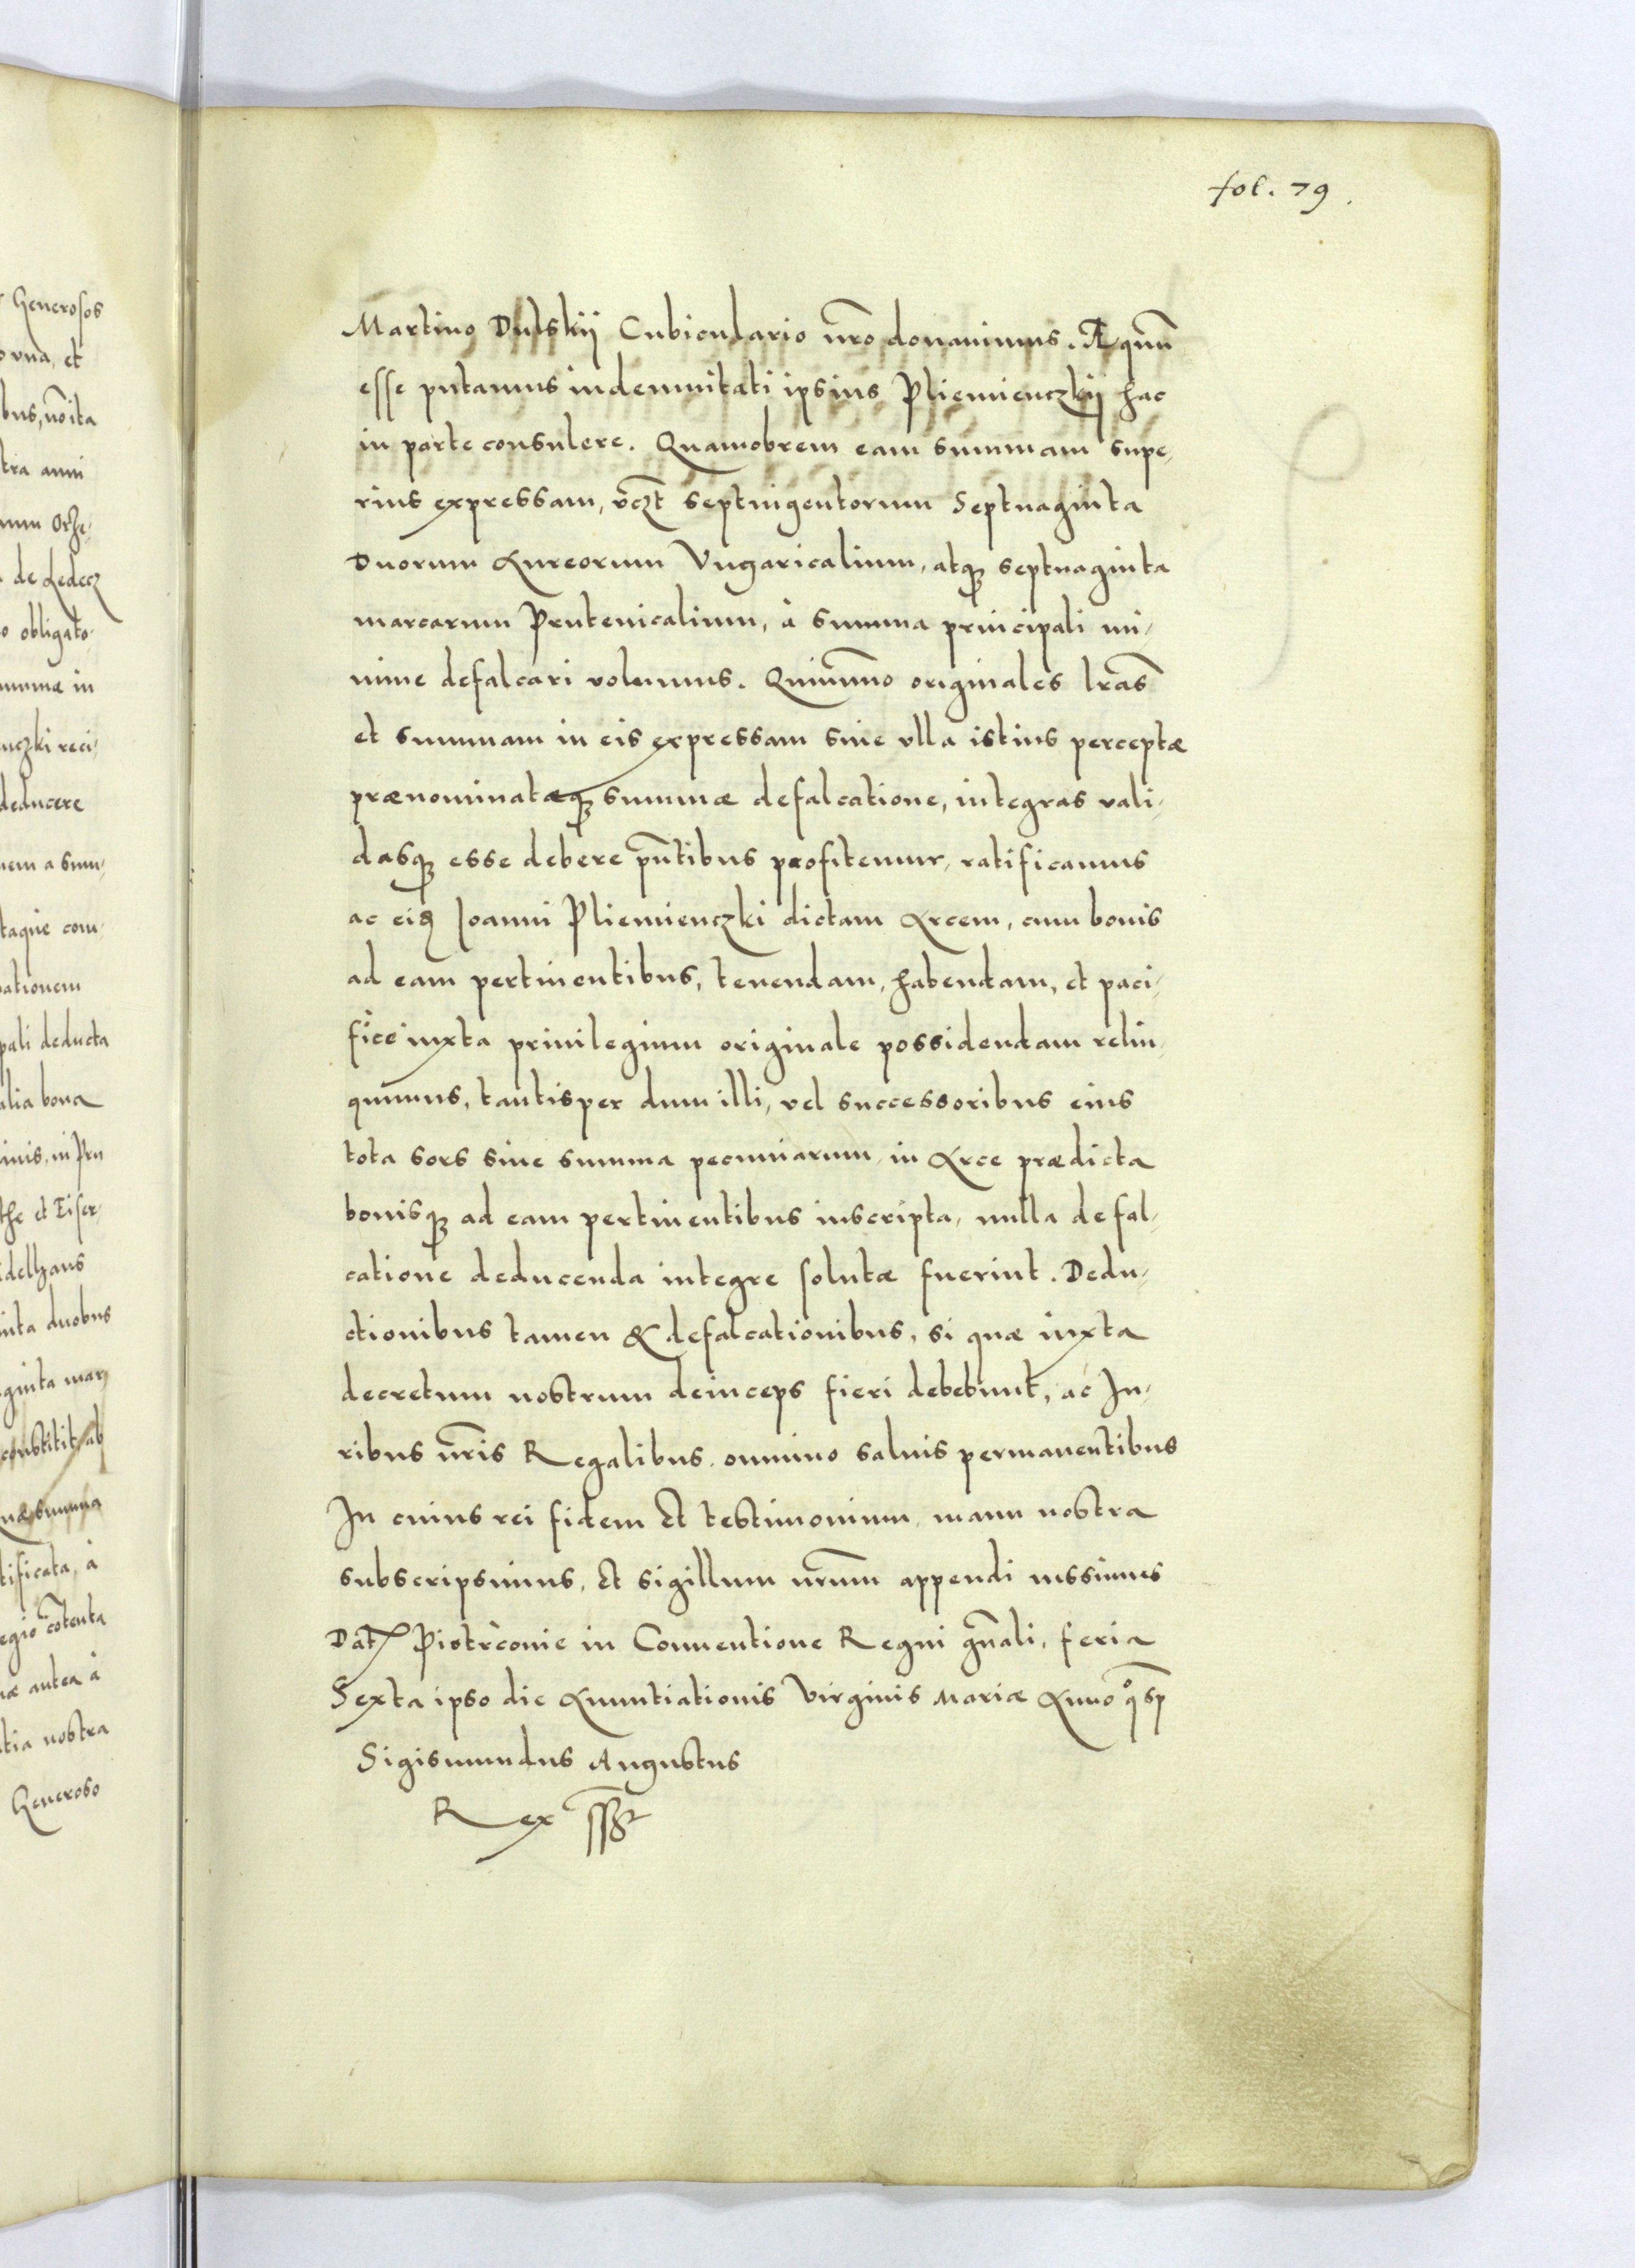 fol. 79.
Martino Dulskij Cubiculario nr̄o donauimus. Æquū
esse putamus indemnitati ipsius Pliemienczkij hac
in parte consulere. Quamobrem eam summam supe,
rius expressam, vcz̄t septingentorum Septuaginta
Duorum Aureorum Vngaricalium, atq₃ septuaginta
marcarum Prutenicalium, à summa principali mi,
nime defalcari volumus. Quinim̄o originales lr̄as
et summam in eis expressam sine vlla istius perceptæ
prænominatæq₃ summæ defalcatione, integras vali,
dasq₃ esse debere pn̄tibus profitemur, ratificamus
ac eid Joanni Pliemienczki dictam Arcem, cum bonis
ad eam pertinentibus, tenendam, habendam, et paci,
ficè iuxta priuilegium originale possidendam relin,
quimus, tantisper dum illi, vel successoribus eius
tota sors siue summa pecuniarum, in Arce prædicta
bonisq₃ ad eam pertinentibus inscripta, nulla defal,
catione deducenda integre solutæ fuerint. Dedu,
ctionibus tamen & defalcationibus, si quæ iuxta
decretum nostrum deinceps fieri debebunt, ac Iu,
ribus nr̄is Regalibus omnino saluis permanentibus
In cuius rei fidem et testimonium, manu nostra
subscripsimus, et sigillum nr̄um appendi iussimus
Dat Piotrconie in Conuentione Regni gn̄ali, feria
Sexta ipso die Anuntiationis Virginis Mariæ Anno qo sp̄
Sigismundus Augustus
Rex sst
Generosos
vna, et
bus, nō ita
tra anni
de Ledecz
obligato,
summæ in
nczki reci,
deducere
nem a sum,
taque com,
ationem
pali deducta
alia bona
inis, in Pru
the et Tiser,
delhaus
inta duobus
ginta mar
constitit, ab
summa
tificata, à
egio cōtenta
antea à
tia nostra
Generoso